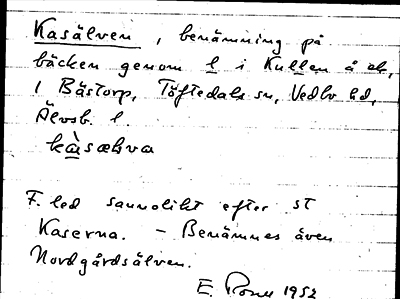 Kasälven, benämning på
bäcken genom l i Kullen å ak,
1 Bästorp, Töftedals sn, Vedbo hd,
Älvsb. l.
kàsæłva
F. led sannolikt efter st
Kaserna. - Benämnes även
Nordgårdsälven.
E. 1952